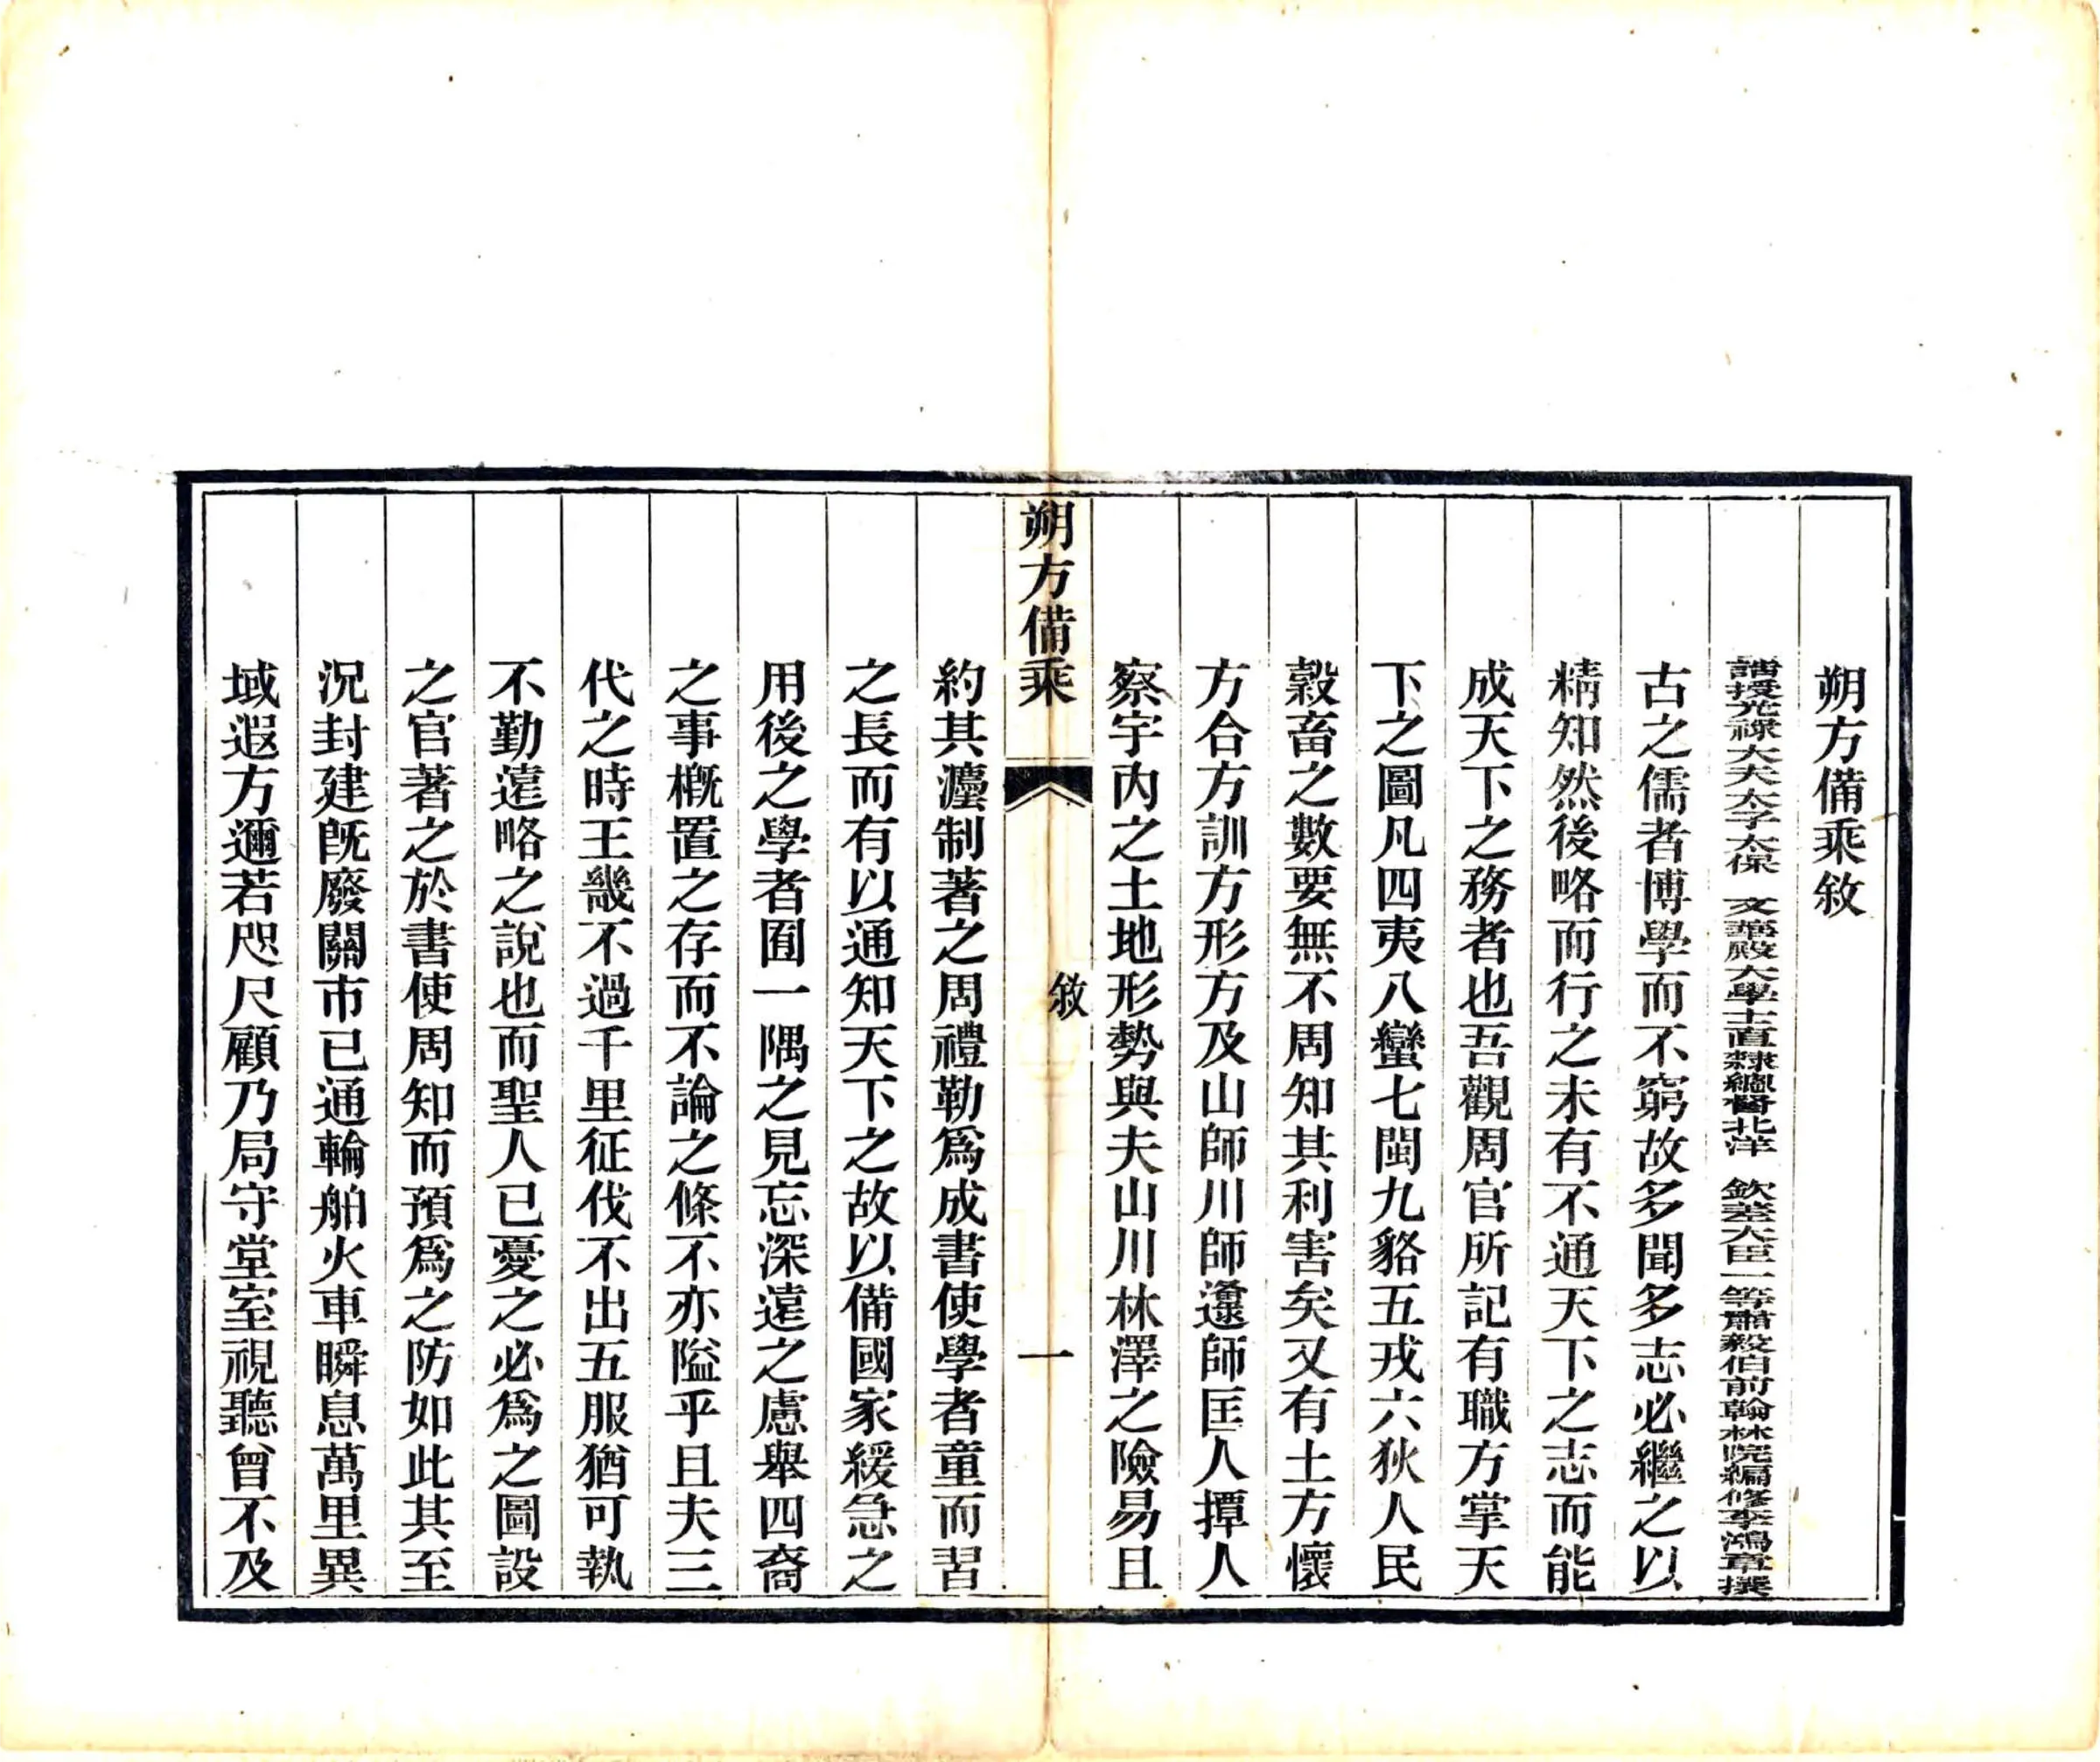 朔方備乘敘
誥授光祿大夫太子太保　文華殿大學士直隸總督北洋　欽差大臣一等肅毅伯前翰林院編修李鴻章撰
古之儒者博學而不窮故多聞多志必繼之以
精知然後略而行之未有不通天下之志而能
成天下之務者也吾觀周官所記有職方掌天
下之圖凡四夷八蠻七閩九貉五戎六狄人民
穀畜之數要無不周知其利害矣又有土方懷
方合方訓方形方及山師川師邍師匡人撢人
察宇內之土地形勢與夫山川林澤之險易且
朔方備乘
敘
一
約其灋制著之周禮勒爲成書使學者童而習
之長而有以通知天下之故以備國家緩急之
用後之學者囿一隅之見忘深遠之慮舉四裔
之事槪置之存而不論之條不亦隘乎且夫三
代之時王畿不過千里征伐不出五服猶可執
不勤遠略之說也而聖人已憂之必爲之圖設
之官著之於書使周知而預爲之防如此其至
況封建旣廢關市已通輪舶火車瞬息萬里異
域遐方邇若咫尺顧乃局守堂室視聽曾不及